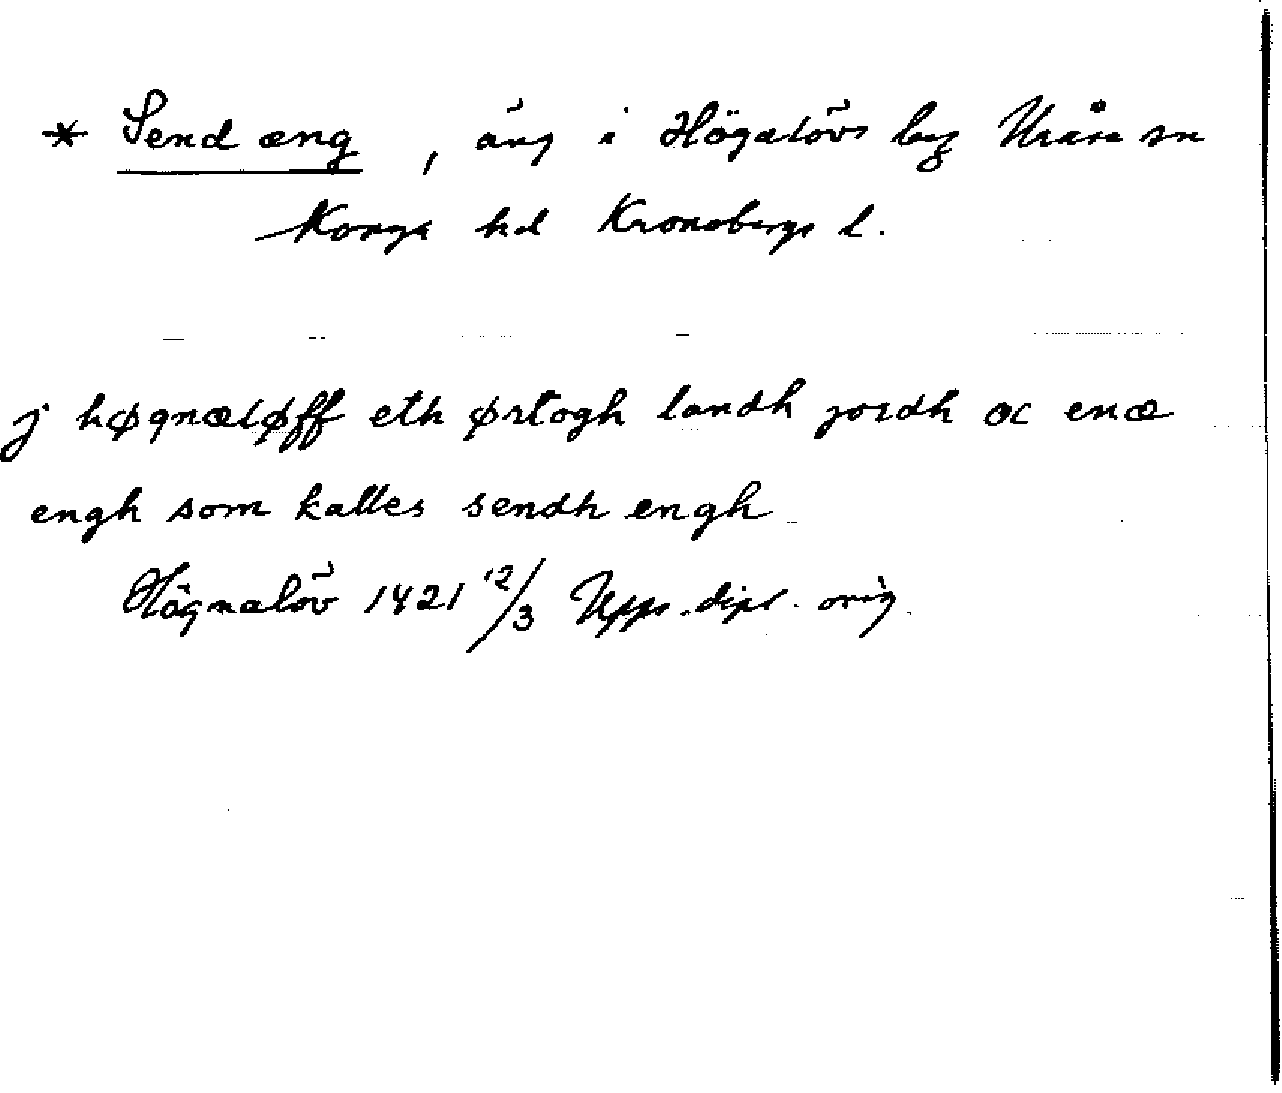 * Send æng, äng i Högalövs by Uråsa sn
Konga hd Kronobergs l.
j høgnæløff eth ørtogh landh jordh oc enæ
engh som kalles sendh engh
Högnalöv 1421 12/3 Upps. dipl. orig.